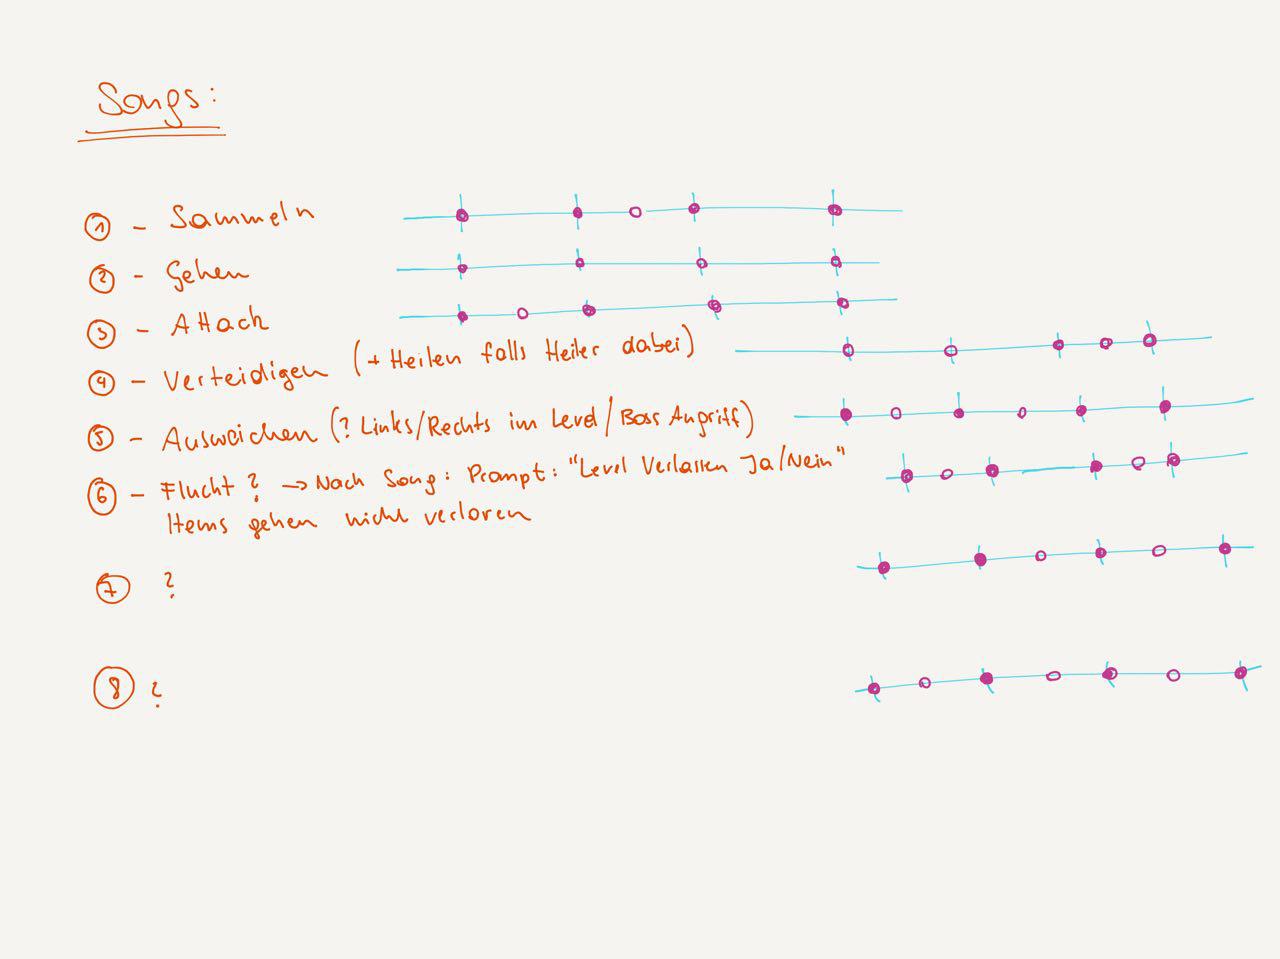 Songs:
① - Sammeln
② - Gehen
③ - Attack
④ - Verteidigen (+ Heilen falls Heiler dabei)
⑤ - Ausweichen (? Links/Rechts im Level/Boss Angriff)
⑥ - Flucht ? → Nach Song: Prompt: "Level Verlassen Ja/Nein"
Items gehen nicht verloren
⑦ ?
⑧ ?